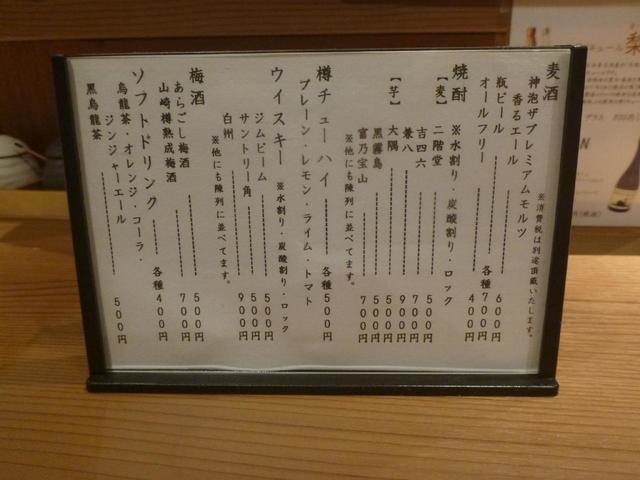 麦酒
※消費税は別途頂戴いたします。
神泡ザプレミアムモルツ
香るエール
瓶ビール 600円
各種700円
オールフリー 400円
焼酎 ※水割り・炭酸割り・ロック
【麦】 二階堂 500円
吉四六 700円
兼八 900円
【芋】 大隅 500円
黒霧島 500円
富乃宝山 700円
※他にも陳列に並べてます。
樽チューハイ 各種500円
プレーン・レモン・ライム・トマト
ウイスキー ※水割り・炭酸割り・ロック
ジムビーム 500円
サントリー角 500円
白州 900円
※他にも陳列に並べてます。
梅酒
あらごし梅酒 500円
山崎樽熟成梅酒 700円
ソフトドリンク 各種400円
烏龍茶・オレンジ・コーラ・
ジンジャーエール
黒烏龍茶 500円